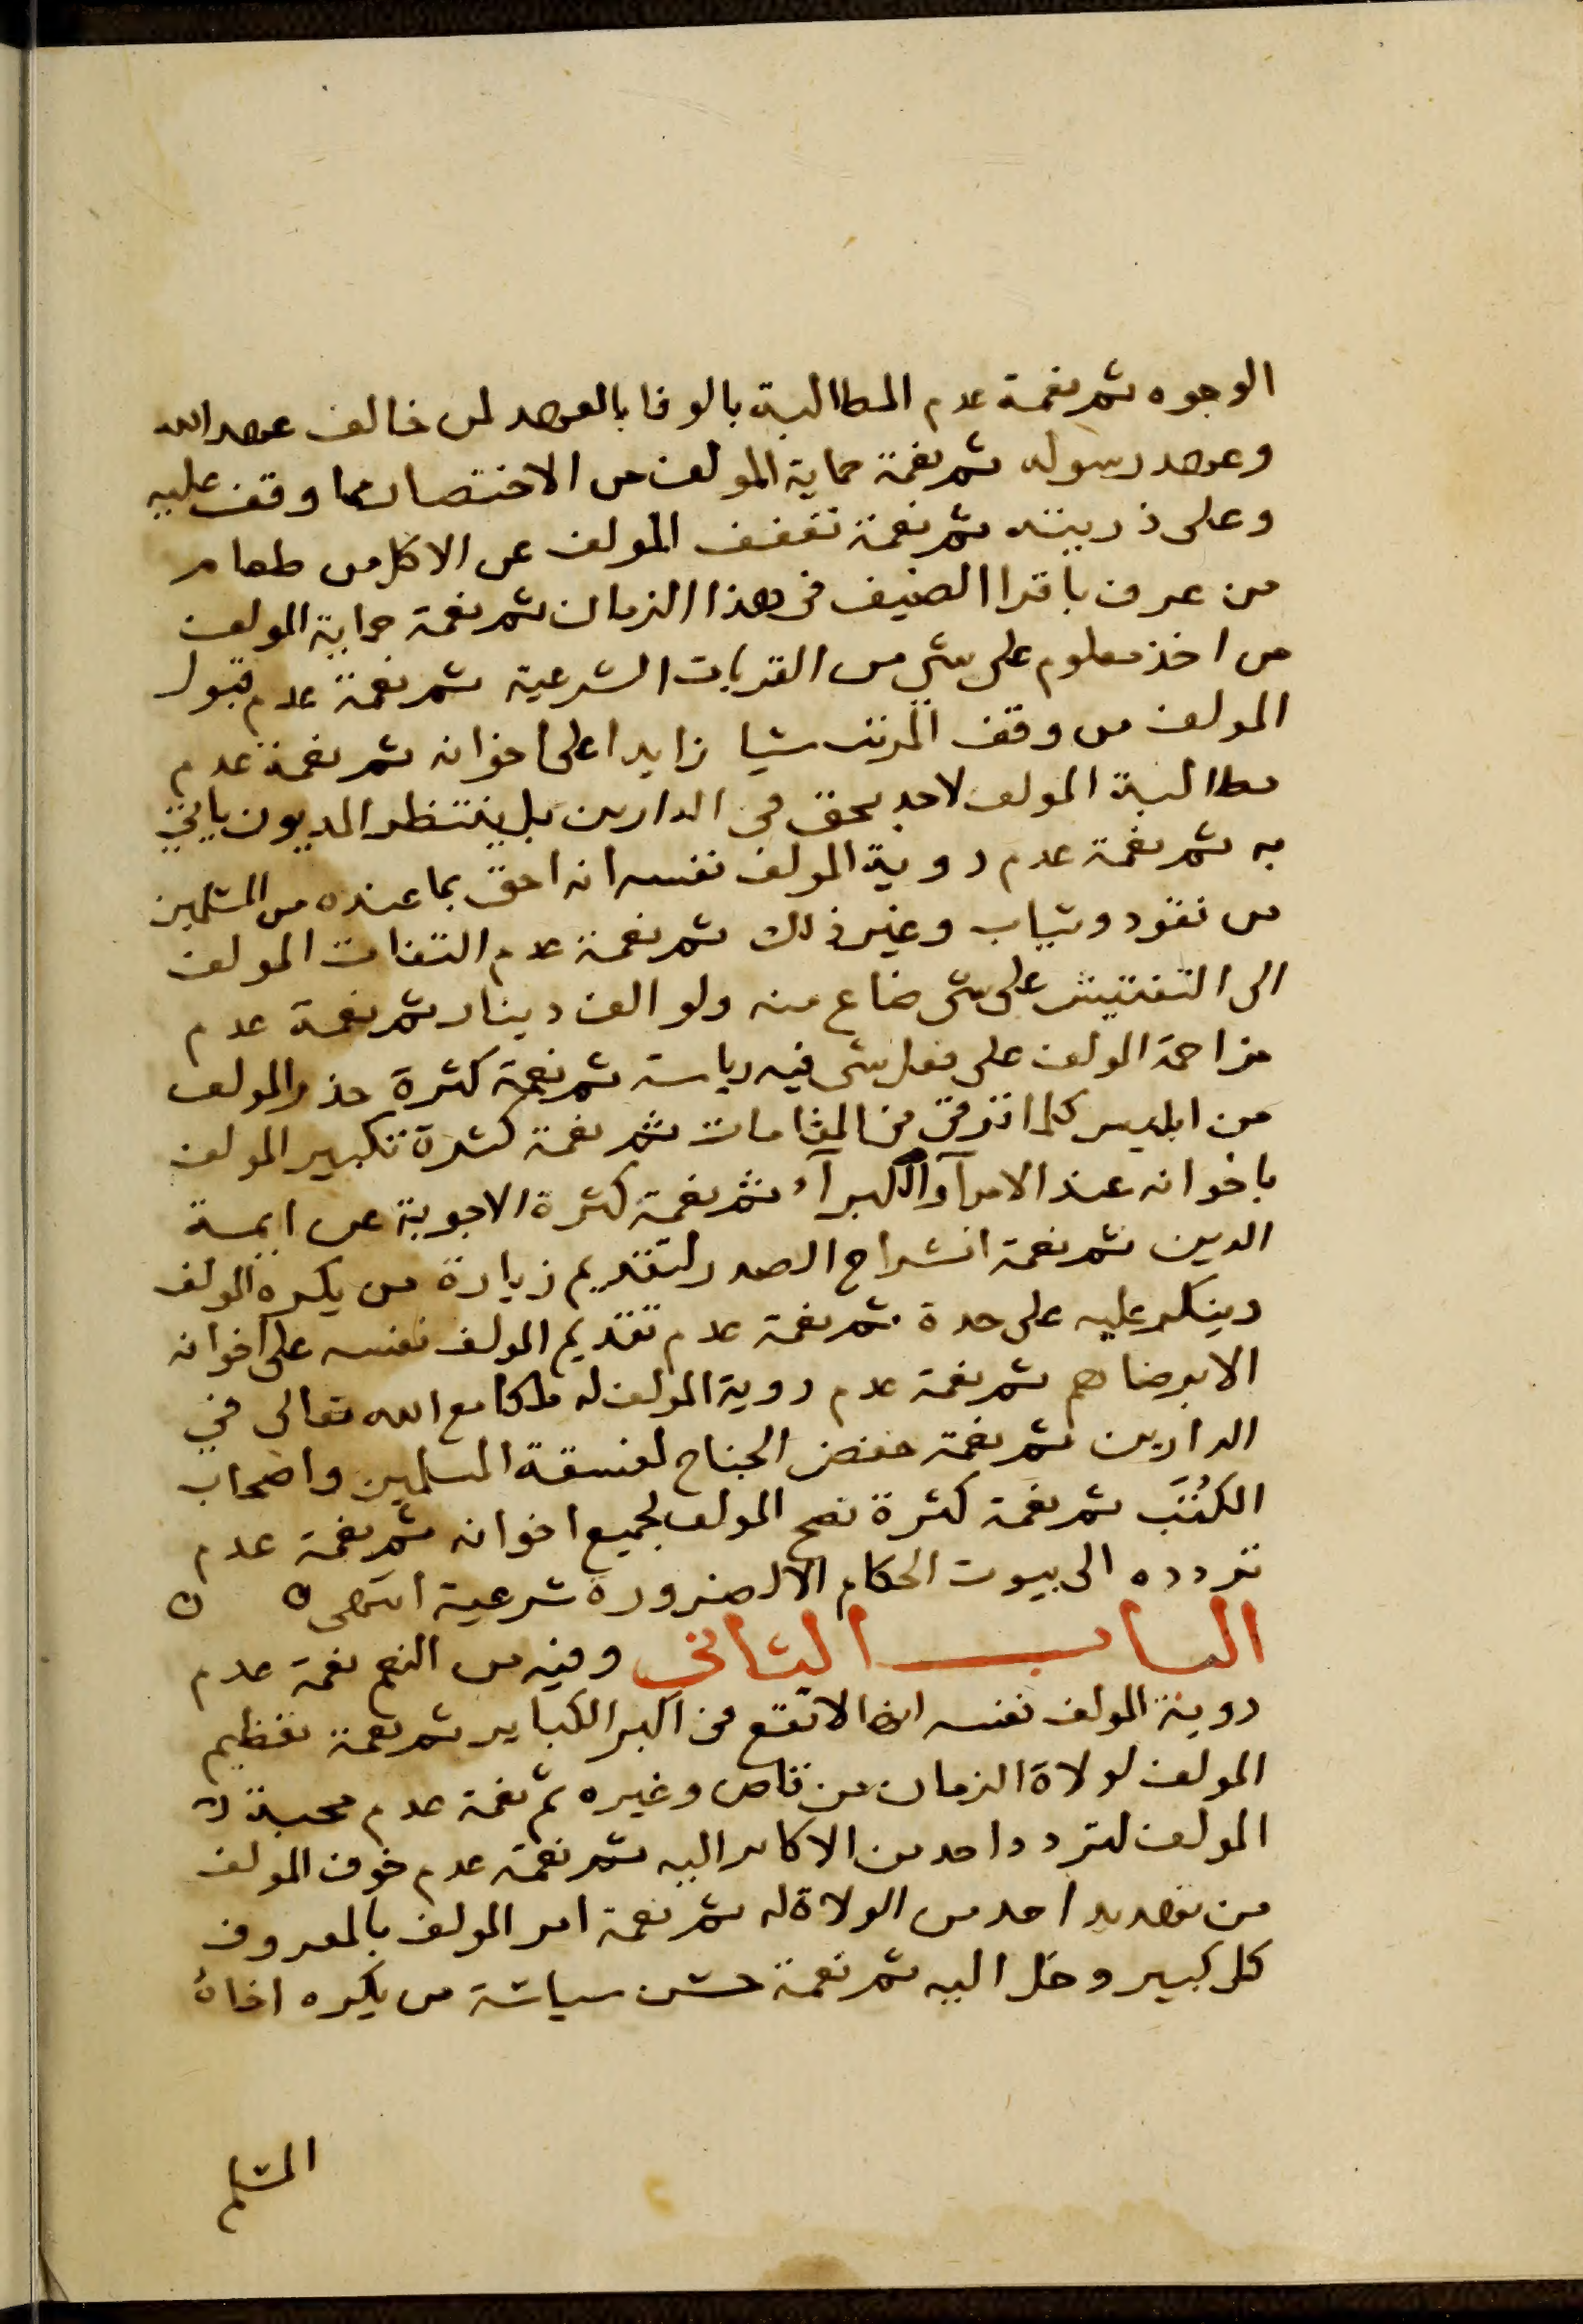 الوجوه ثم نعمة عدم المطالبة بالوفا بالعهد لمن خالف عهد الله
وعهد رسوله ثم نعمة حماية المولف من الاختصاص بما وقف عليه
وعلى ذريته ثم نعمة تعفف المولف عن الاكل من طعام
من عرف باقرا الضيف في هذا الزمان ثم نعمة حماية المولف
من اخذ معلوم على شي من القربات الشرعية ثم نعمة عدم قبول
المولف من وقف شيا زايدا على اخوانه ثم نعمة عدم
مطالبة المولف لاحد بحق في الدارين بل ينتظر المديون ياتي
به ثم نعمة عدم روية المولف نفسه انه احق بما عنده من المسلمين
من نقود وثياب وغير ذلك ثم نعمة عدم التفات المولف
الى التفتيش على شي ضاع منه ولو الف دينار ثم نعمة عدم
مزاحمة المولف على فعل شي فيه رياسة ثم نعمة كثرة حذر المولف
من ابليس كلما ترقى في المقامات ثم نعمة كثرة تكبير المولف
باخوانه عند الامرآ والكبرآء ثم نعمة كثرة الاجوبة عن ايمة
الدين ثم نعمة انشراح الصدر لتقديم زيارة من يكره المولف
وينكر عليه على حدة ثم نعمة عدم تقديم المولف نفسه على اخوانه
الا برضاهم ثم نعمة عدم روية المولف له ملكا مع الله تعالى في
الدارين ثم نعمة خفض الجناح لفسقة المسلمين واصحاب
الكتب ثم نعمة كثرة نصح المولف لجميع اخوانه ثم نعمة عدم
تردده الى بيوت الحكام الا لضرورة شرعية انتهى
الباب الثاني وفيه من النعم نعمة عدم
روية المولف نفسه انها لا تقع في اكبر الكباير ثم نعمة تعظيم
المولف لولاة الزمان من قاض وغيره ثم نعمة عدم محبة
المولف لتردد احد من الاكابر اليه ثم نعمة عدم خوف المولف
من تهديد احد من الولاة له ثم نعمة امر المولف بالمعروف
كل كبير دخل اليه ثم نعمة حسن سياسة من يكره اخاه
المسلم